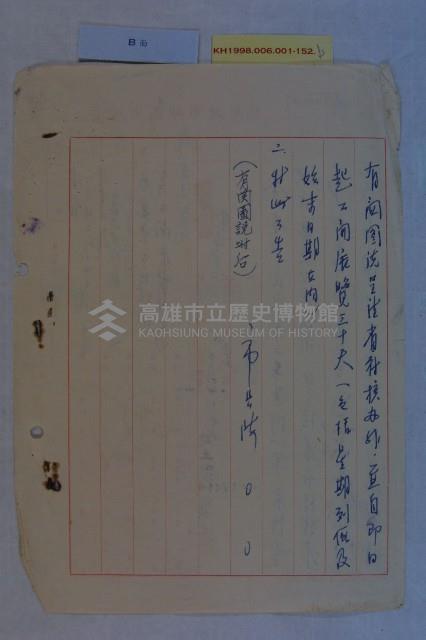 B面
KH1998.006.001-152
有關圖說呈請省府核办外,並自即日
起公開展覽三十天(包括星期例假及
始末日期在內)
二、
(有関圖說附后)
市長陳〇〇
高雄市立歷史博物館
KAOHSIUNG MUSEUM OF HISTORY